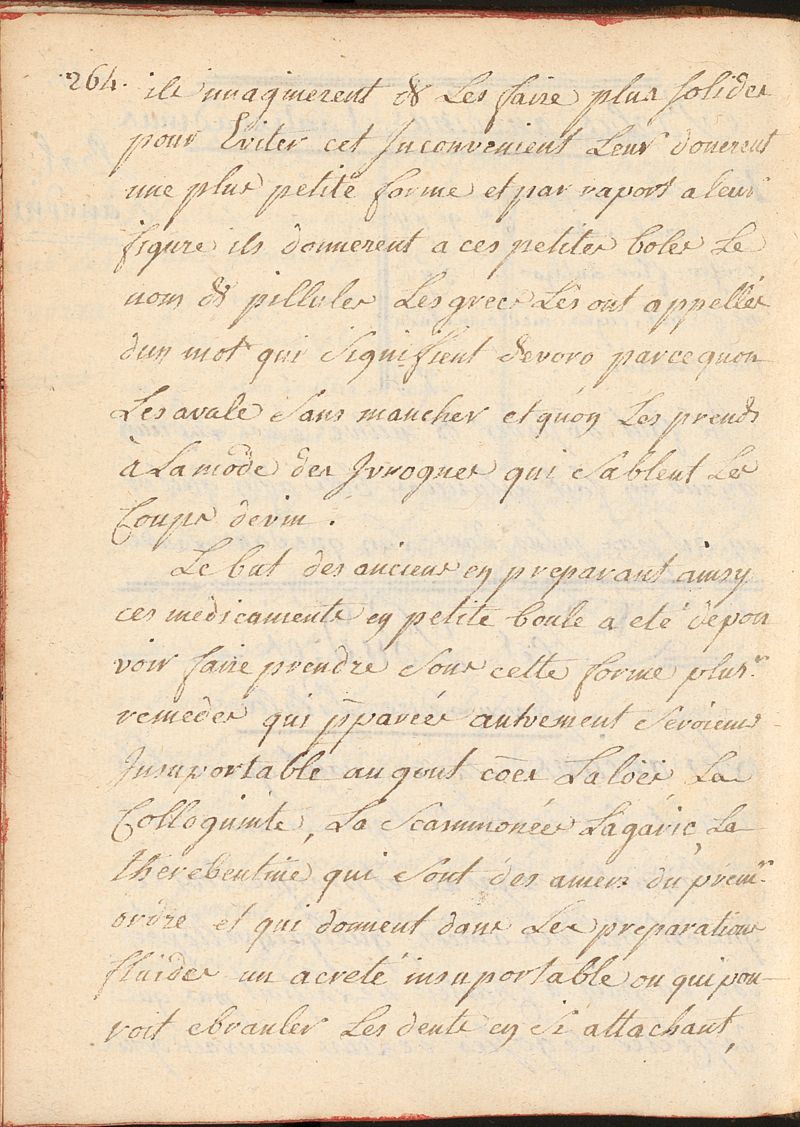 264. ils imaginerent de les faire plus solides
pour Eviter cet Inconvenient Leur donerent
une plus petite forme et par raport a leur
figure ils donnerent a ces petites boles Le
nom de pillules Les grecs Les ont appellés
dun mot qui signifient devoro parcequon
Les avale sans mancher et quoy Les prends
à La mode des Jvrognes qui sablent Les
Coups de vin.
Le but des anciens en preparant ainsy
ces medicaments en petite boule a eté de pou
voir faire prendre sous cette forme plusrs
remedes qui pparées autrement seroiens
Insuportable au gout cões Laloës La
Colloquinte, La scammonées Lagaric, La
therebentine qui sont des amers du premr
ordre et qui donnent dans Les preparations
fluides un acreté insuportable ou qui pou-
roit ebranler Les dents en si attachant,